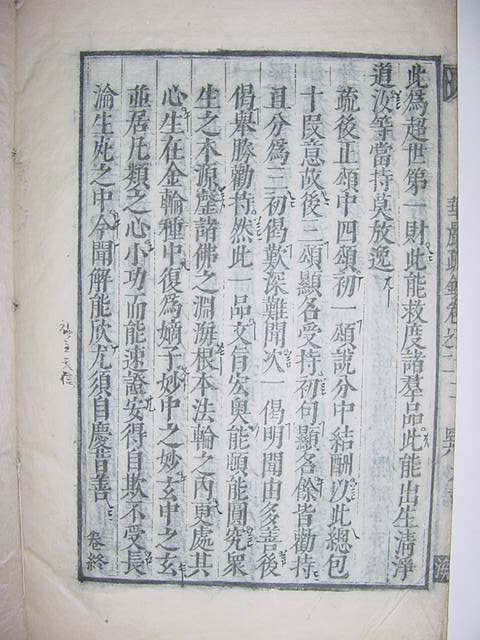 此爲超世第一財此能救度諸羣品此能出生清淨
道汝等當持莫放逸
疏後正頌中四頌初一頌說分中結酬以此總包
十段意故後三頌顯名受持初句顯名餘皆勸持
且分爲三初偈歎深難聞次一偈明聞由多善後
偈舉勝勸持然此一品文旨宏奧能頤能圓究衆
生之本源罄諸佛之淵海根本法輪之內更處其
心生在金輪種中復爲嫡子妙中之妙玄中之玄
並居凡類之心小功而能速證安得自欺不受長
淪生死之中今聞解能欣尤須自慶昔善
卷終
華嚴疏鈔卷